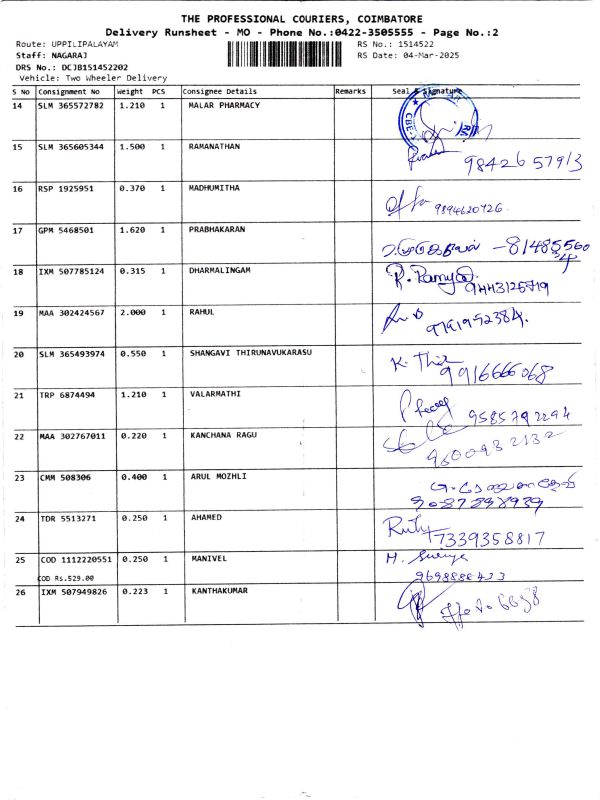 THE PROFESSIONAL COURIERS, COIMBATORE
Delivery Runsheet - MO - Phone No.:0422-3505555 - Page No.:2
Route: UPPILIPALAYAM RS No.: 1514522
Staff: NAGARAJ RS Date: 04-Mar-2025
DRS No.: DCJB151452202
Vehicle: Two Wheeler Delivery
S No Consignment No Weight PCS Consignee Details Remarks Seal & Signature
14 SLM 365572782 1.210 1 MALAR PHARMACY
15 SLM 365605344 1.500 1 RAMANATHAN 98426 57913
16 RSP 1925951 0.370 1 MADHUMITHA 9894620726.
17 GPM 5468501 1.620 1 PRABHAKARAN
18 IXM 507785124 0.315 1 DHARMALINGAM R. Ramya 9443125719
19 MAA 302424567 2.000 1 RAHUL
20 SLM 365493974 0.550 1 SHANGAVI THIRUNAVUKARASU K. 9916666068
21 TRP 6874494 1.210 1 VALARMATHI 9585792294
22 MAA 302767011 0.220 1 KANCHANA RAGU 9600932132
23 CMM 508306 0.400 1 ARUL MOZHLI
24 TDR 5513271 0.250 1 AHAMED 7339358817
25 COD 1112220551 0.250 1 MANIVEL
COD Rs.529.00 9698888433
26 IXM 507949826 0.223 1 KANTHAKUMAR